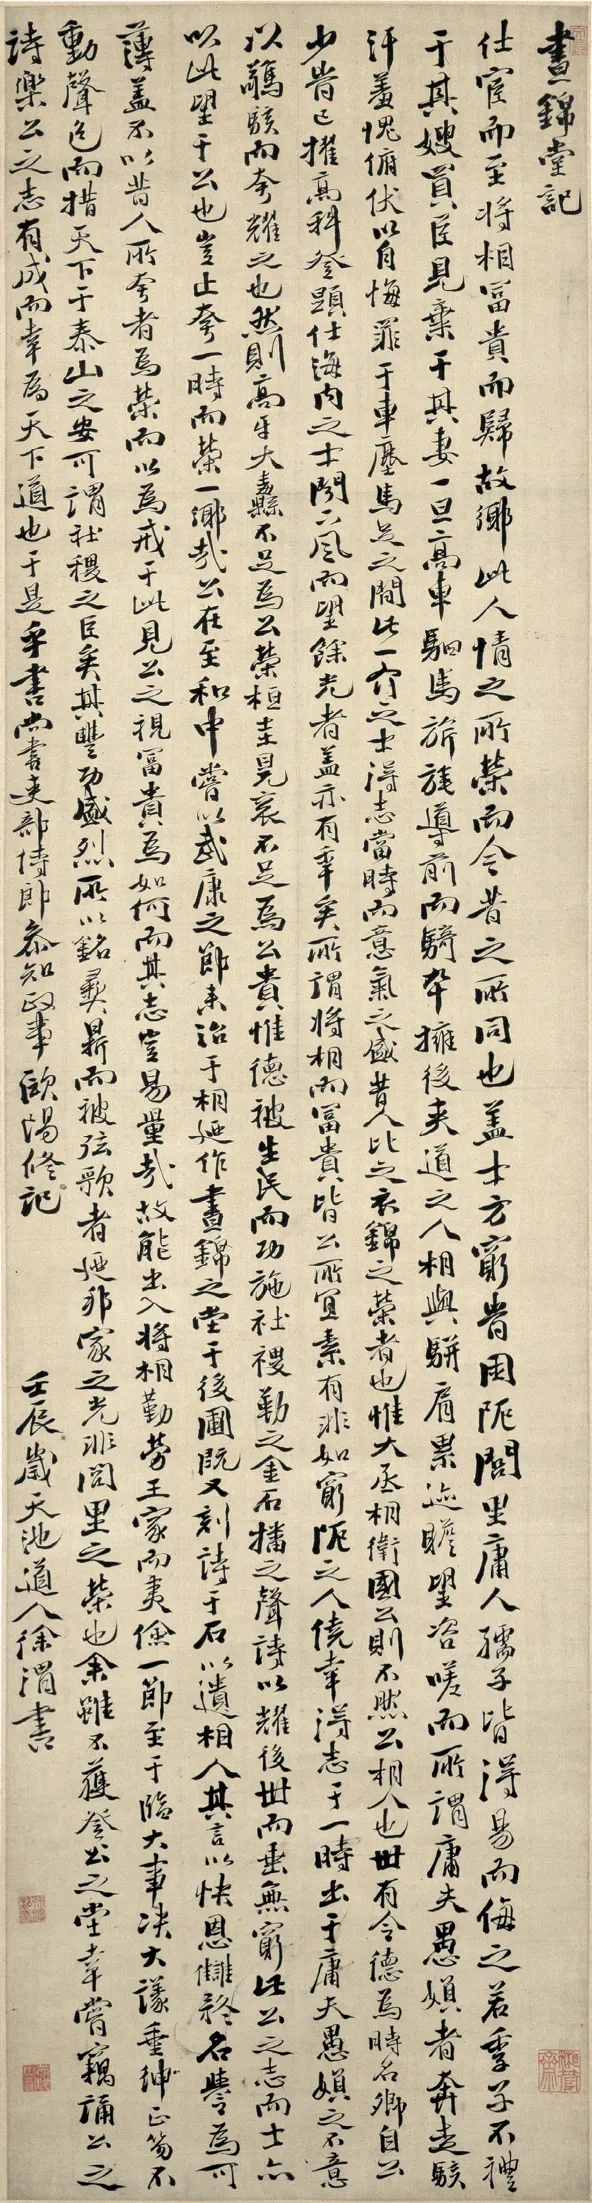 晝錦堂記
仕宦而至將相富貴而歸故鄉此人情之所榮而今昔之所同也蓋士方窮時困阨閭里庸人孺子皆得易而侮之若季子不禮
于其嫂買臣見棄于其妻一旦高車駟馬旂旄導前而騎卒擁後夾道之人相與駢肩累迹瞻望咨嗟而所謂庸夫愚婦者奔走駭
汗羞愧俯伏以自悔罪于車塵馬足之間此一介之士得志當時而意氣之盛昔人比之衣錦之榮者也惟大丞相衛國公則不然公相人也世有令德為時名卿自公
少時已擢高科登顯仕海內之士聞下風而望餘光者蓋亦有年矣所謂將相而富貴皆公所宜素有非如窮阨之人僥幸得志于一時出于庸夫愚婦之不意
以驚駭而夸耀之也然則高牙大纛不足為公榮桓圭冕袞不足為公貴惟德被生民而功施社稷勒之金石播之聲詩以耀後世而垂無窮此公之志而士亦
以此望于公也豈止夸一時而榮一鄉哉公在至和中嘗以武康之節來治于相迺作晝錦之堂于後圃既又刻詩于石以遺相人其言以快恩讎矜名譽為可
薄蓋不以昔人所夸者為榮而以為戒于此見公之視富貴為如何而其志豈易量哉故能出入將相勤勞王家而夷儉一節至于臨大事決大議垂紳正笏不
動聲色而措天下于泰山之安可謂社稷之臣矣其豐功盛烈所以銘彝鼎而被弦歌者迺邦家之光非閭里之榮也余雖不獲登公之堂幸嘗竊誦公之
詩樂公之志有成而幸為天下道也于是乎書尚書吏部侍郎參知政事歐陽修記
壬辰歲天池道人徐渭書